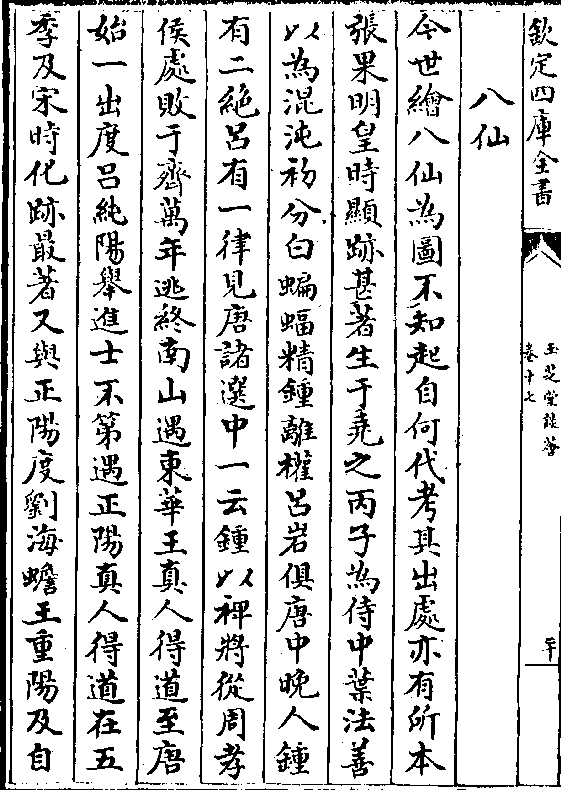 欽定四庫全書
玉芝堂談薈
卷十七
二十
八仙
今世繪八仙為圖不知起自何代考其出處亦有所本
張果明皇時顯跡甚著生于堯之丙子為侍中葉法善
以為混沌初分白蝙蝠精鍾離權吕岩俱唐中晚人鍾
有二絶吕有一律見唐諸選中一云鍾以裨將從周孝
侯處敗于齊萬年逃終南山遇東華王真人得道至唐
始一出度吕純陽舉進士不第遇正陽真人得道在五
季及宋時化跡最著又與正陽度劉海蟾王重陽及自